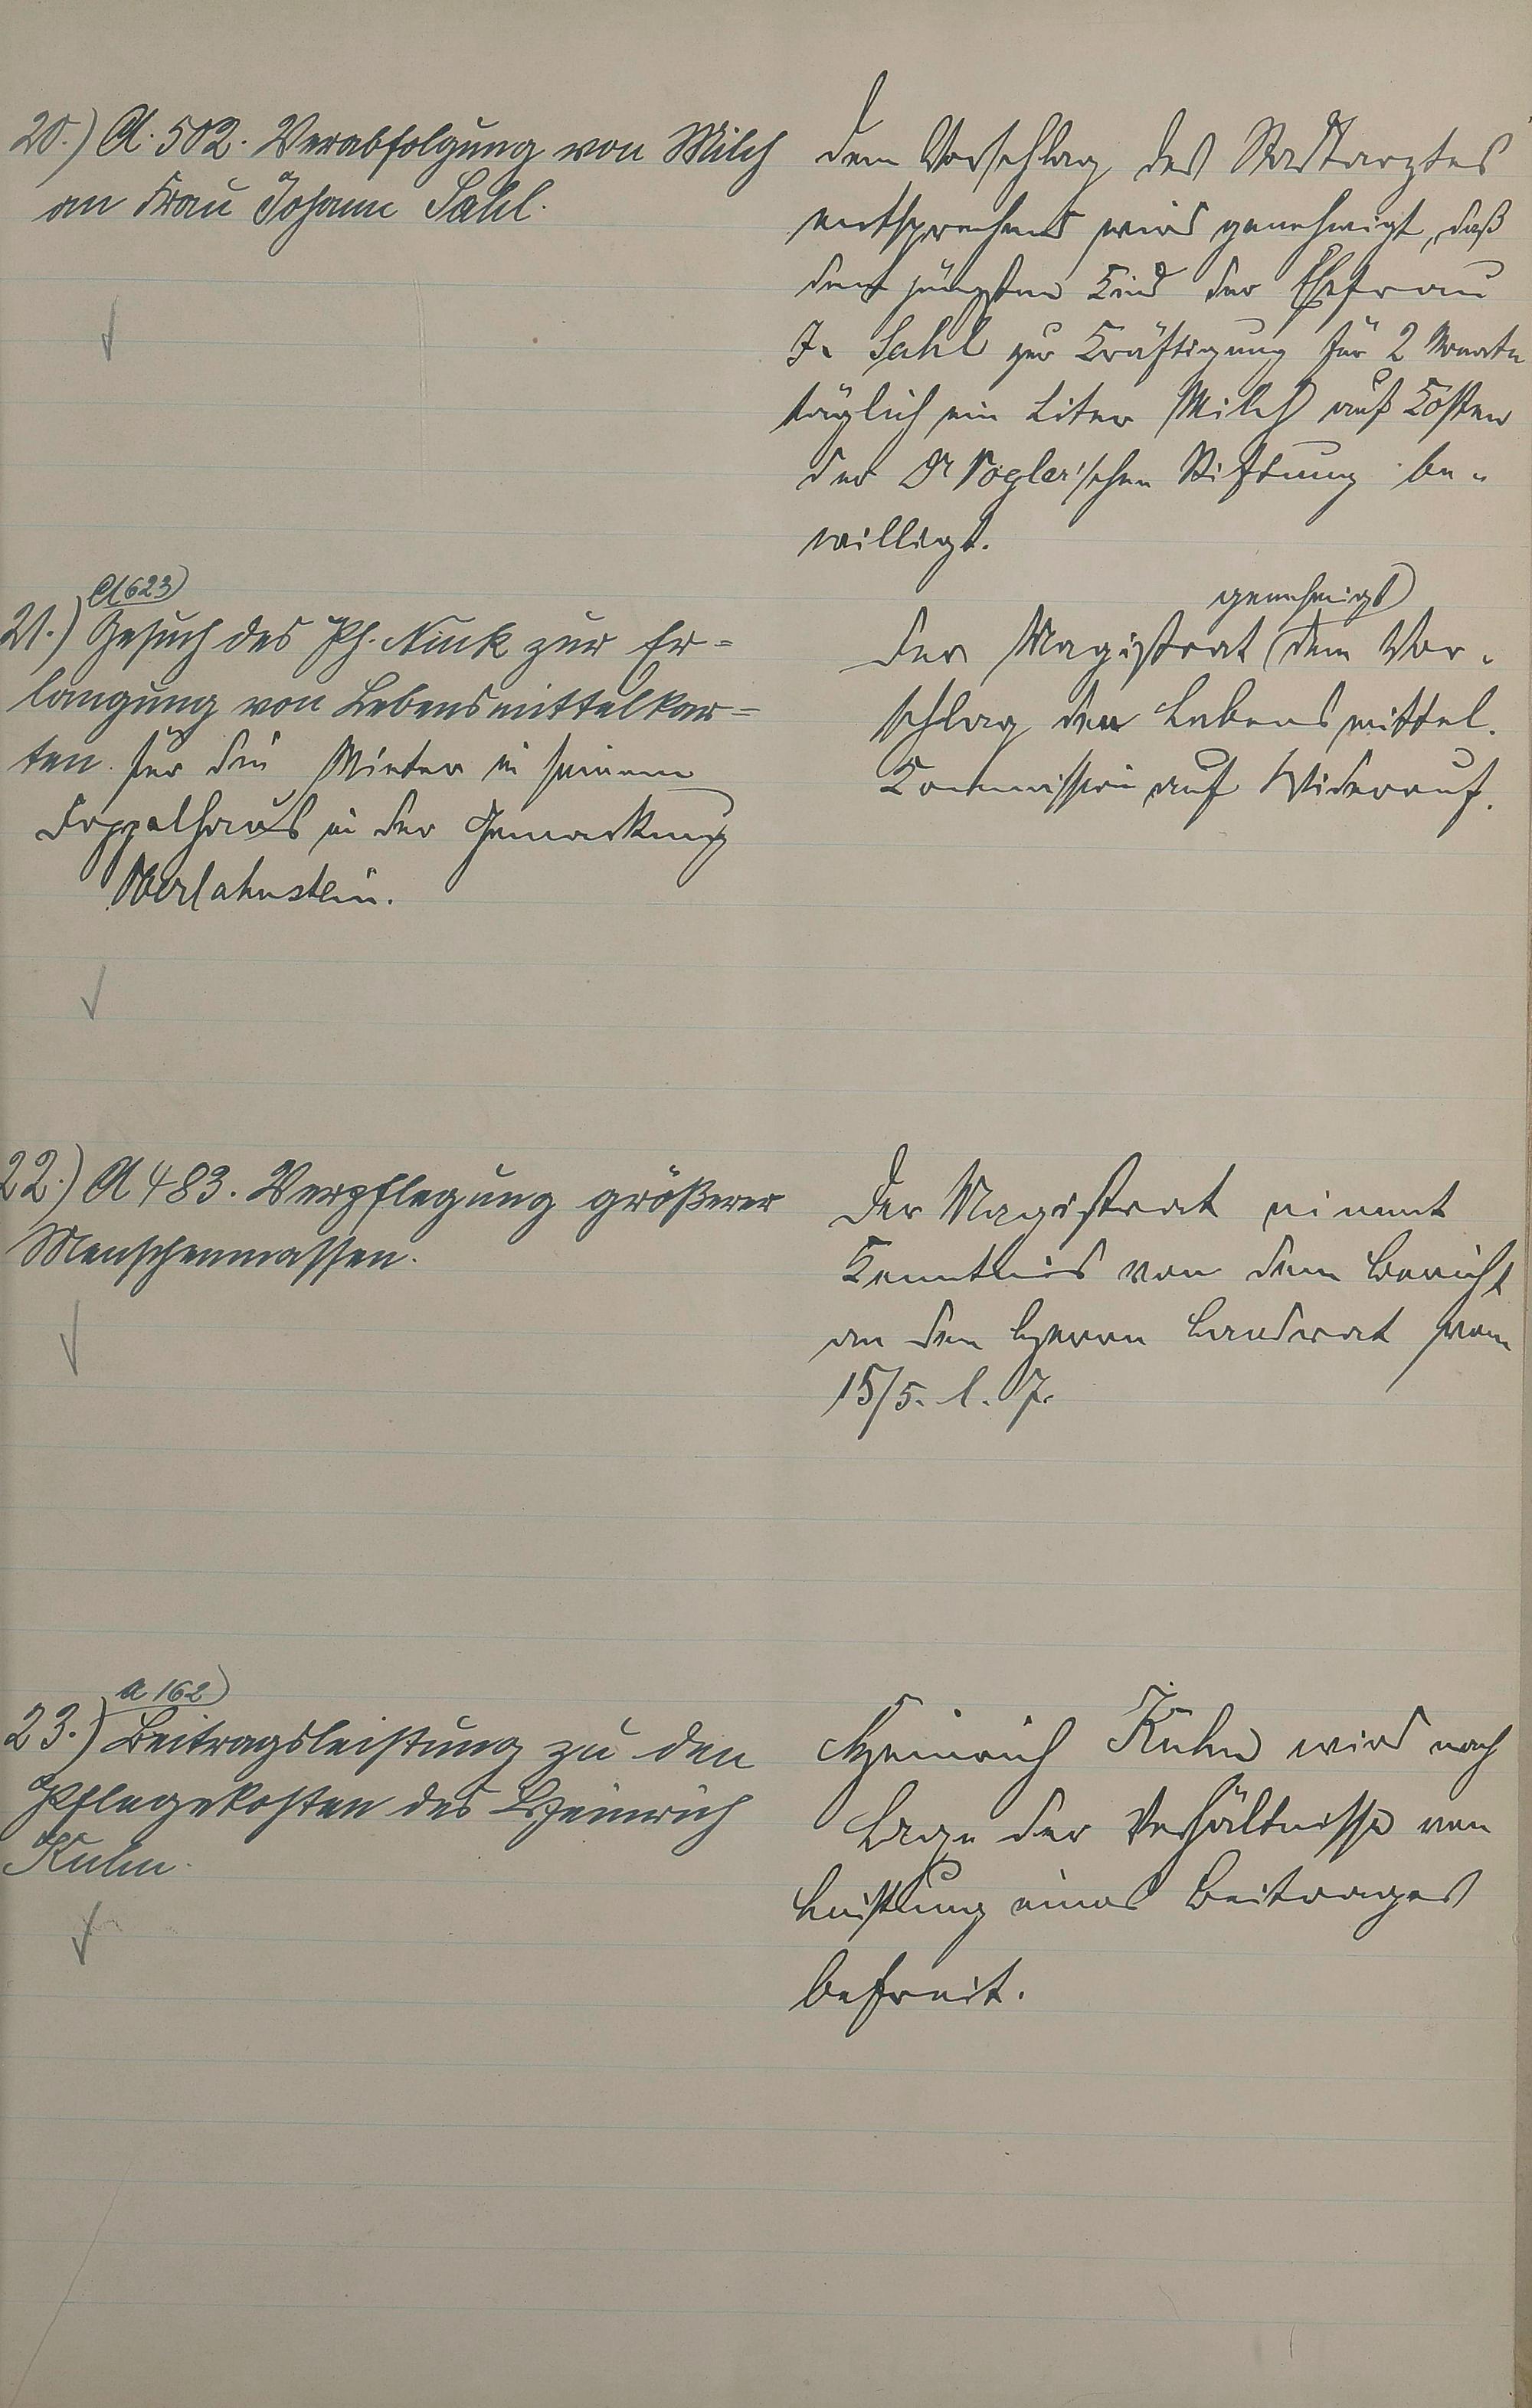 20.) A. 502. Verabfolgung von Milch
an Frau Johann Sahl.
Dem Vorschlag des Stadtarztes
entsprechend wird genehmigt, daß
dem jüngsten Kind der Ehefrau
J. Sahl zur Kräftigung für 2 Monate
täglich ein Liter Milch auf Kosten
der Dr Vogler'schen Stiftung be-
willigt.
A 623
21.) Gesuch des Ph. Nink zur Er=
langung von Lebensmittelkar=
ten für die Mieter in seinem
Doppelhaus in der Gemarkung
Oberlahnstein.
genehmigt
Der Magistrat dem Vor-
schlag der Lebensmittel-
Kommission auf Widerruf.
22.) A 483. Verpflegung größerer
Menschenmassen.
Der Magistrat nimmt
Kenntnis von dem Bericht
an den Herrn Landrat vom
15/5. l. J.
A 162
23.) Beitragsleistung zu den
Pflegekosten des Heinrich
Kuhn.
Heinrich Kuhn wird nach
Lage der Verhältnisse von
Leistung eines Beitrages
befreit.